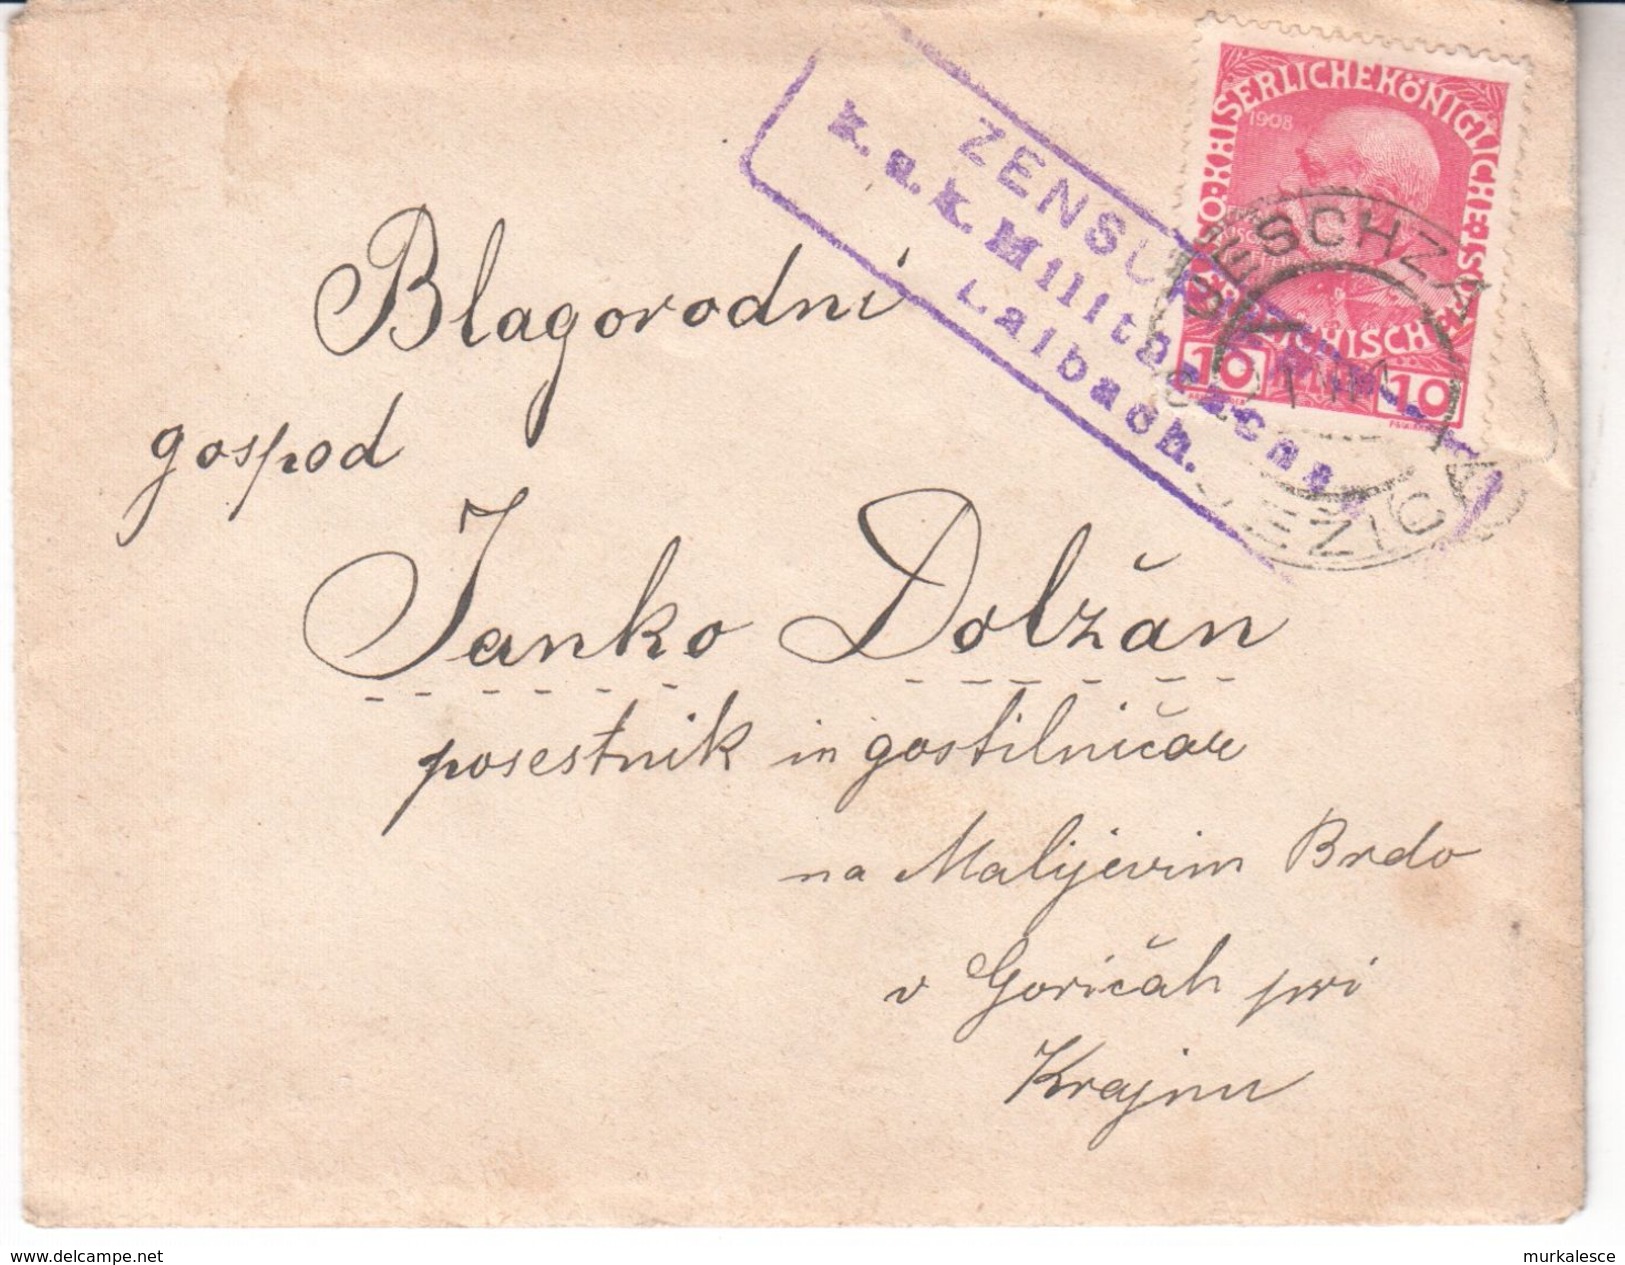 ZENSURIERT
K. u. K. Militärzensur
Laibach.
KAISERLICHE KÖNIGLICHE
1908
10 10
JESCHZA
JEŽICA
Blagorodni
gospod
Janko Dolžan
posestnik in gostilničar
na Malijevim Brdo
v Goričah pri
Krajnu
www.delcampe.net
murkalesce